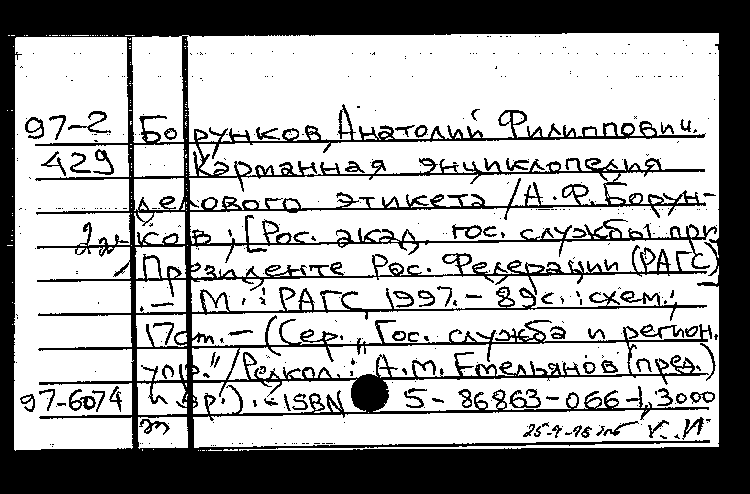 97-2 Борунков, Анатолий Филиппович.
429 Карманная энциклопедия
делового этикета / А.Ф. Борун-
ков; [Рос. акад. гос. службы при
Президенте Рос. Федерации (РАГС)
. – М.: РАГС, 1997. – 89 с.: схем.;
17 cm. – (Сер. „Гос. служба и регион.
упр." / Редкол.: А.М. Емельянов (пред.)
97-6074 и др.). – ISBN 5-86863-066-1, 3000